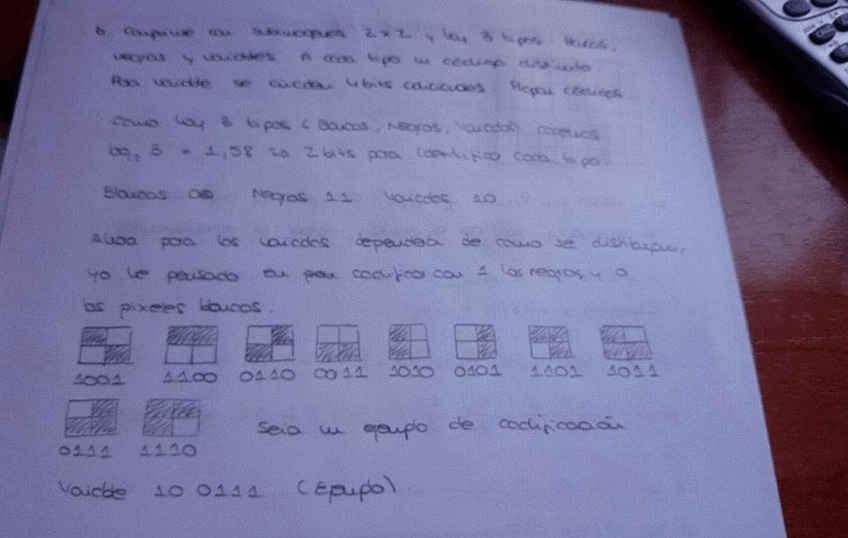 b. Comprimir con subbloques 2x2 y hay 3 tipos: blancos,
negros y variables. A cada tipo un código distinto.
Para variable se añaden 4 bits adicionales. Propon códigos.
Como hay 3 tipos (Blancos, Negros, Variados) cogemos
log₂ 3 = 1,58 2 bits para identificar cada tipo.
Blancos 00 Negros 11 Variados 10
Ahora para los variados dependerá de como se distribuyan,
yo he pensado en codificar con 1 los negros y 0
los pixeles blancos.
1001 1100 0110 0011 1010 0101 1101 1011
0111 1110 Sería un ejemplo de codificación
Variable 10 0111 (Ejemplo)